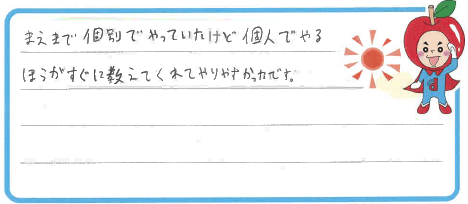 まえまで個別でやっていたけど個人でやる
ほうがすぐに教えてくれてやりやすかったです。
d